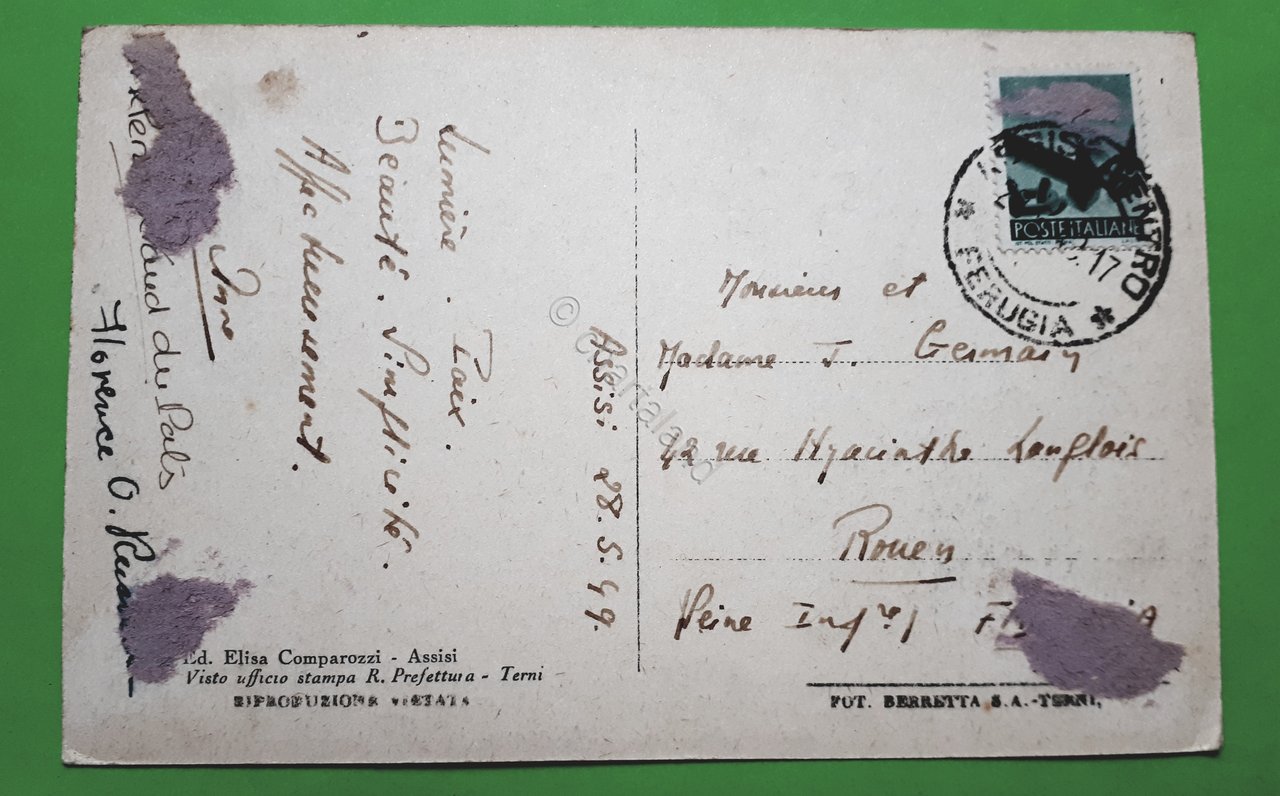 Assisi 28.5.49.
Lumière. Paix.
Beauté. Simplicité.
Affectueusement.
Anne
du Palis
Florence O.
Monsieur et
Madame J. Germain
42 rue Hyacinthe Langlois
Rouen
Seine Infre
POSTE ITALIANE
ASSISI CENTRO
17
* PERUGIA *
Ed. Elisa Comparozzi - Assisi
Visto ufficio stampa R. Prefettura - Terni
RIPRODUZIONE VIETATA
FOT. BERRETTA S.A.-TERNI,
© Cartaland